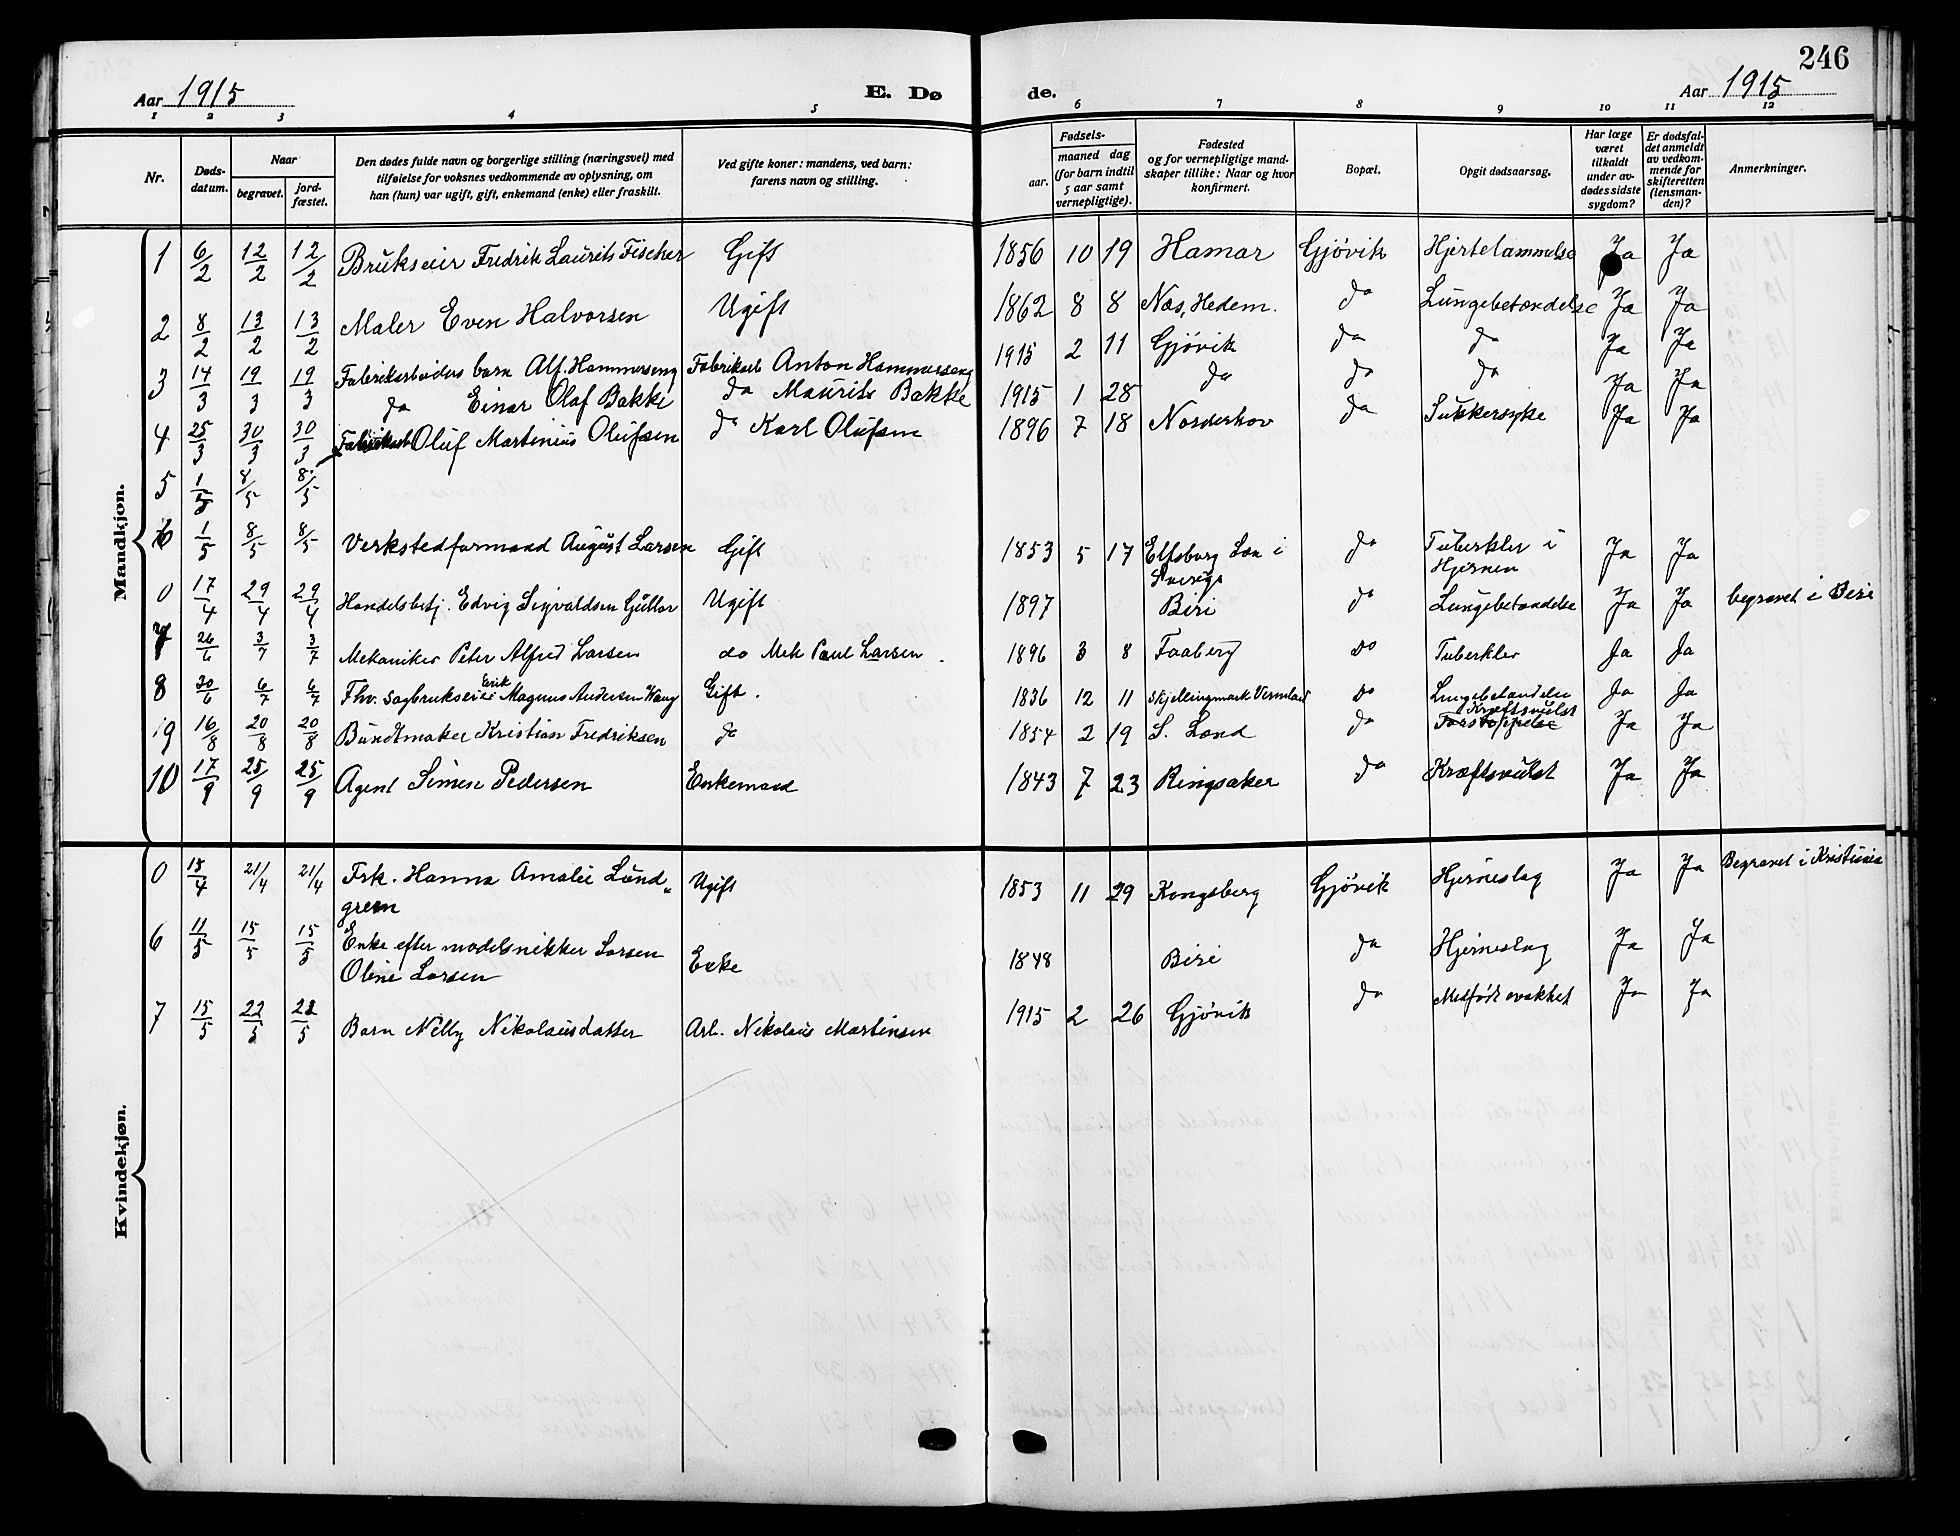 246
Aar 1915
E. Dø
de.
Aar 1915
1 2 3 4 5 6 7 8 9 10 11 12
Nr.
Døds-
datum.
Naar
begravet.
jord-
fæstet.
Den dødes fulde navn og borgerlige stilling (næringsvei) med
tilføielse for voksnes vedkommende av oplysning, om
han (hun) var ugift, gift, enkemand (enke) eller fraskilt.
Ved gifte koner: mandens, ved barn:
farens navn og stilling.
Fødsels-
aar.
maaned dag
(for barn indtil
5 aar samt
vernepligtige).
Fødested
og for vernepligtige mand-
skaper tillike: Naar og hvor
konfirmert.
Bopæl.
Opgit dødsaarsag.
Har læge
været
tilkaldt
under av-
dødes sidste
sygdom?
Er dødsfal-
det anmeldt
av vedkom-
mende for
skifteretten
(lensman-
den)?
Anmerkninger.
Mandkjøn.
1 6/2 12/2 12/2 Brukseier Fredrik Laurits Fischer Gift 1856 10 19 Hamar Gjövik Hjertelammelse Ja Ja
2 8/2 13/2 13/2 Maler Even Halvorsen Ugift 1862 8 8 Nes, Hedem. do Lungebetændelse Ja Ja
3 14/3 19/3 19/3 Fabrikarbeiders barn Alf. Hammerseng Fabrikarb Anton Hammerseng 1915 2 11 Gjövik do do Ja Ja
4 25/3 30/3 30/3 do Einar Olaf Bakke do Maurits Bakke 1915 1 28 do do do Ja Ja
5 1/5 8/5 8/5 Fabrikarb Oluf Martinius Olufsen do Karl Olufsen 1896 7 18 Norderhov do Sukkersyke Ja Ja
6 1/5 8/5 8/5 Verkstedformand August Larsen Gift 1853 5 17 Elfsborg Læn i
Sverige do Tuberkler i
Hjernen Ja Ja
0 17/4 29/4 29/4 Handelsbetj. Edvig Sigvaldsen Gullor Ugift 1897 Biri do Lungebetændelse Ja Ja begravet i Biri
7 26/6 3/7 3/7 Mekaniker Peter Alfred Larsen do Mek Paul Larsen. 1896 3 8 Faaberg do Tuberkler Ja Ja
8 30/6 6/7 6/7 Fhv. sagbrukseier Erik Magnus Andersen Wang Gift. 1836 12 11 Skjellingmark Vermland do Lungebetændelse Ja Ja
9 16/8 20/8 20/8 Buntmaker Kristian Fredriksen do 1854 2 19 S. Land do Kræftsvulst
Forstoppelse Ja Ja
10 17/9 25/9 25/9 Agent Simen Pedersen Enkemand 1843 7 23 Ringsaker do Kræftsvulst Ja Ja
Kvindekjøn.
0 15/4 21/4 21/4 Frk. Hanna Amalie Lund-
green Ugift 1853 11 29 Kongsberg Gjövik Hjerneslag Ja Ja Begravet i Kristiania
6 11/5 15/5 15/5 Enke efter modelsnikker Larsen
Oline Larsen Enke 1848 Biri do Hjerneslag Ja Ja
7 15/5 22/5 22/5 Barn Nelly Nikolausdatter Arb. Nikolaus Martinsen 1915 2 26 Gjövik do Medfødt svakhet Ja Ja